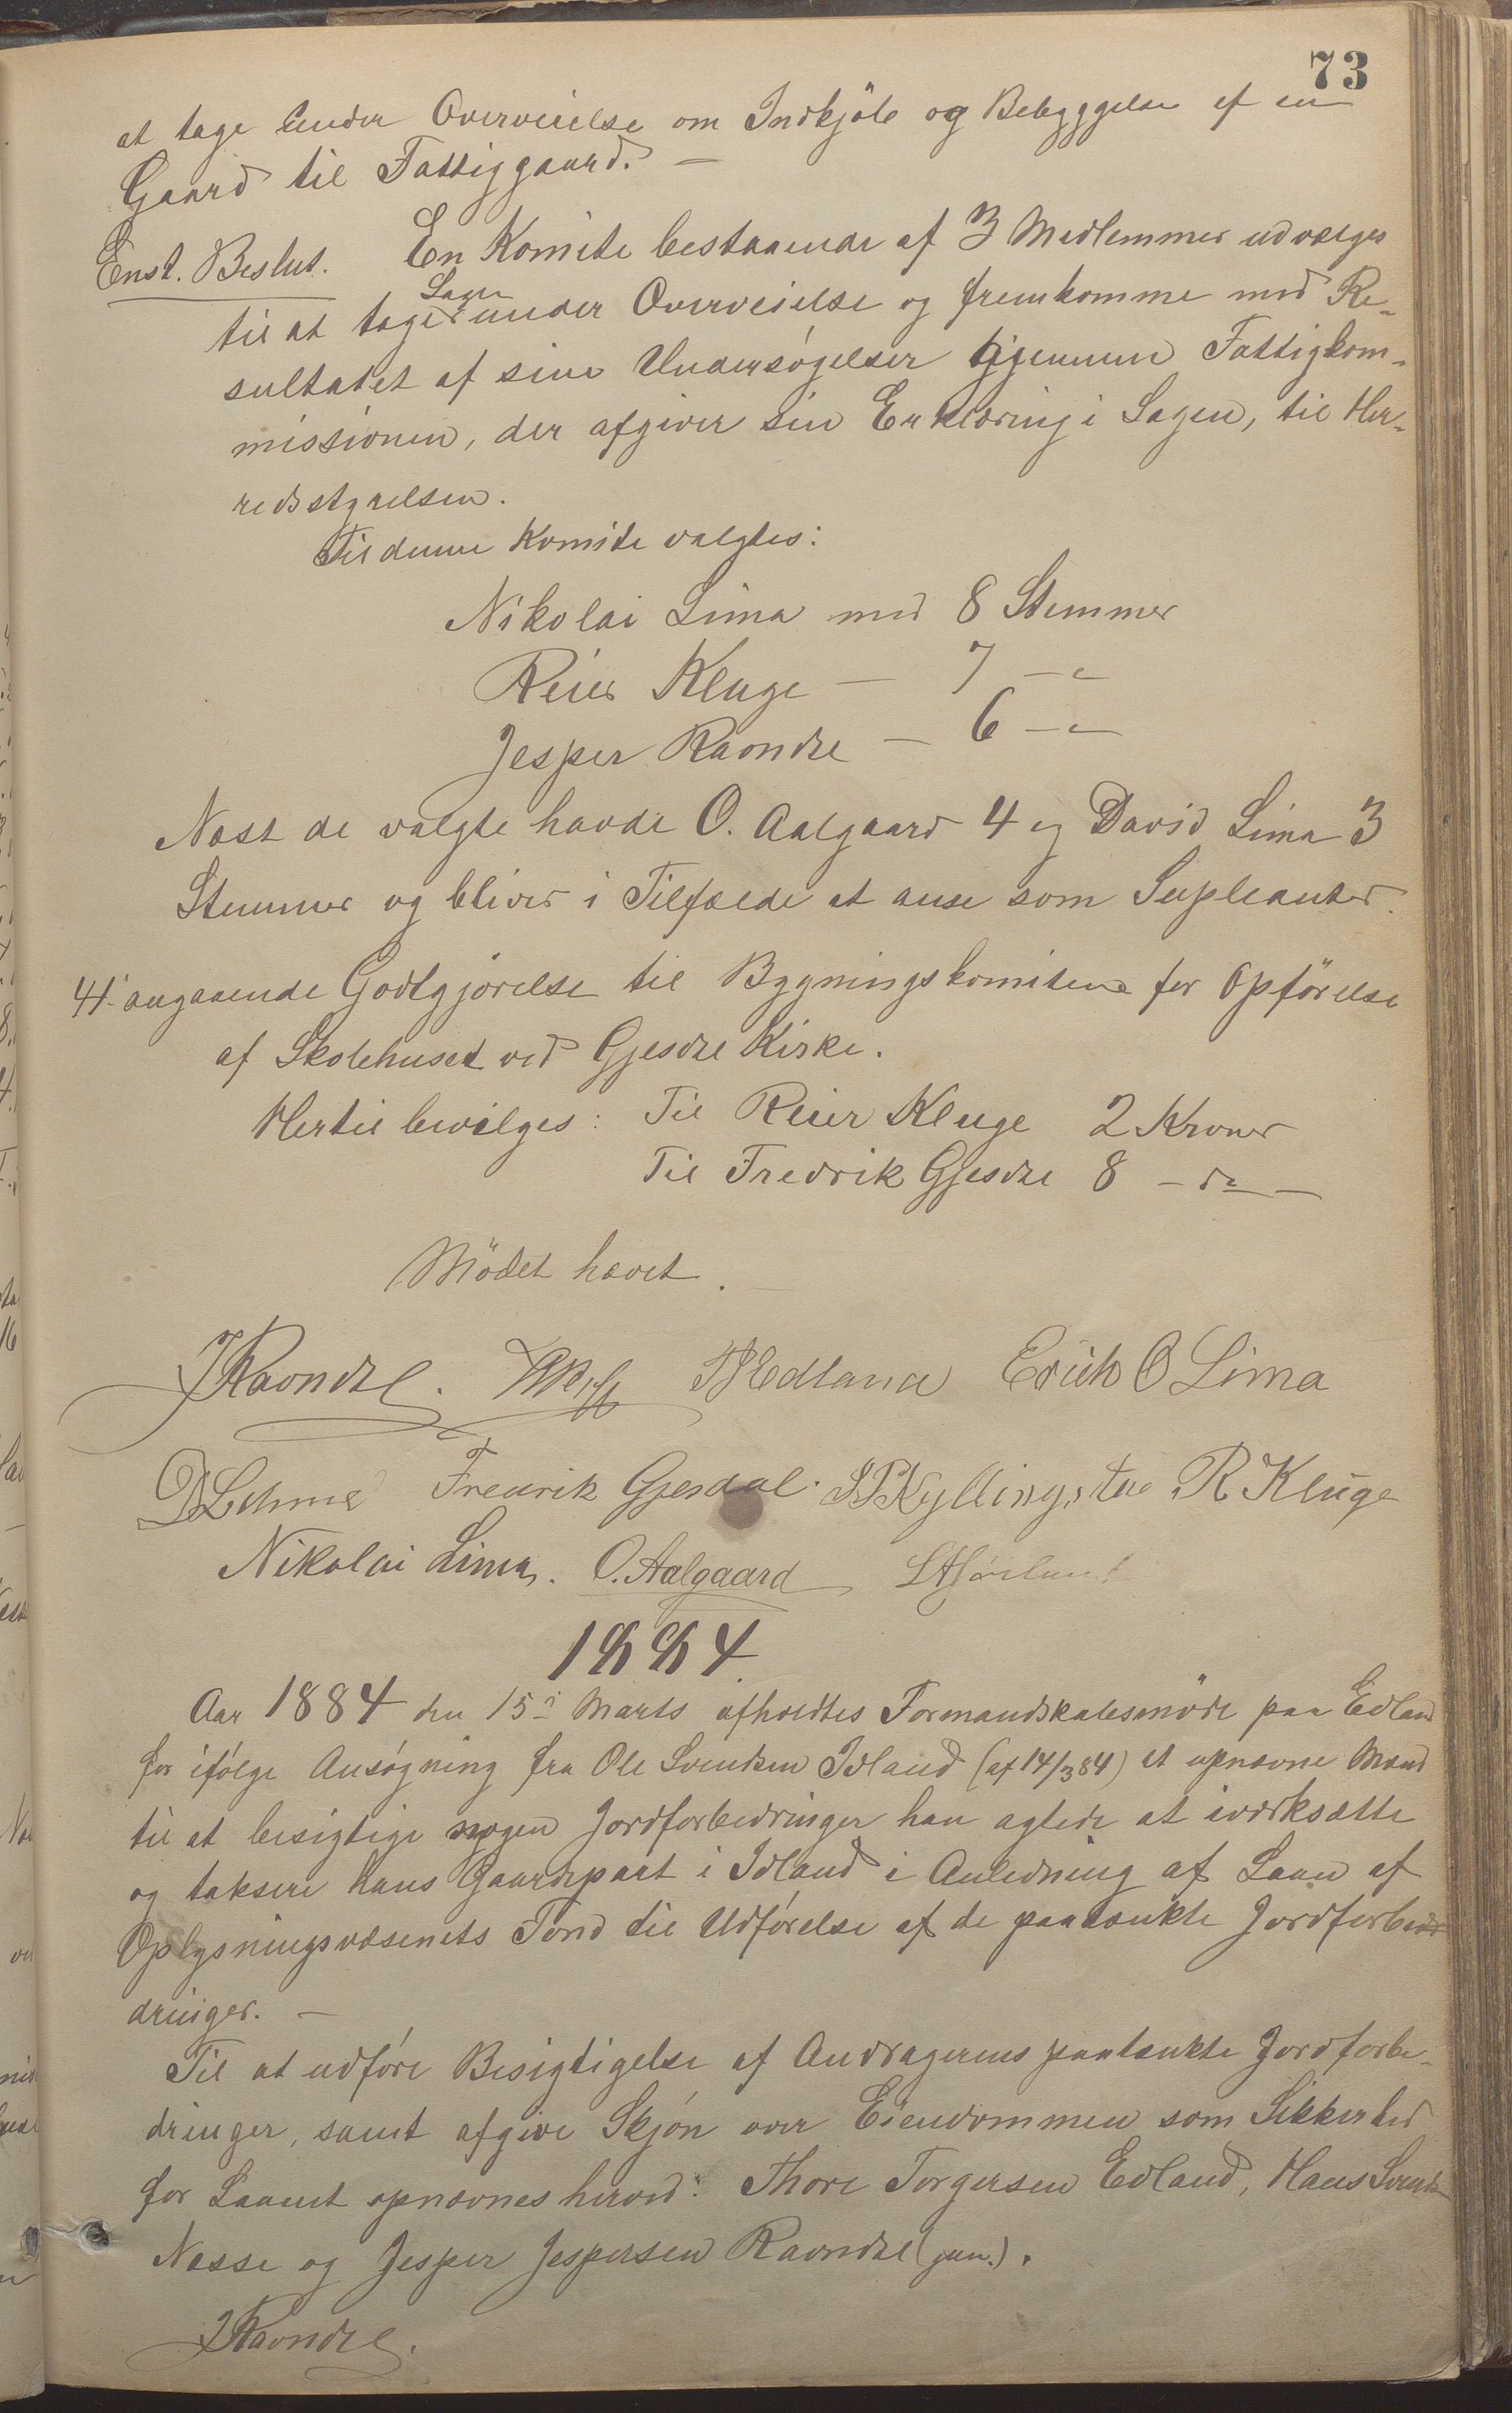 73
at tage under Overveielse om Indkjöb og Bebyggelse af en
Gaard til Fattiggaard. —
Enst. Beslut. En Komite bestaaende af 3 Medlemmer udvælges
til at tage Sagen under Overveielse og fremkomme med Re-
sultatet af sine Undersøgelser gjennem Fattigkom-
missionen, der afgiver sin Erklæring i Sagen, til Her-
redsstyrelsen.
Til denne Komite valgtes:
Nikolai Lima med 8 Stemmer
Reier Kluge — 7 —"—
Jesper Ravndal — 6 —"—
Næst de valgte havde O. Aalgaard 4 og David Lima 3
Stemmer og bliver i Tilfælde at anse som Supleanter.
4. angaaende Godtgjørelse til Bygningskomiteen for Opførelse
af Skolehuset ved Gjesdal Kirke.
Hertil bevilges: Til Reier Kluge 2 Kroner
Til Fredrik Gjesdal 8 — do —
Mödet hævet.
J Ravndal. T Edland Erik O Lima
Fredrik Gjesdal. S P Kyllingstad R Kluge
Nikolai Lima. O. Aalgaard
1884
Aar 1884 den 15de Marts afholdtes Formandskabsmöde paa Edland
for ifølge Ansøgning fra Ole Svendsen Idland (af 14/3 84) at opnævne Mænd
til at besigtige nogen Jordforbedringer han agtede at iværksætte
og taksere hans Gaardepart i Idland i Anledning af Laan af
Oplysningsvæsenets Fond til Udførelse af de paatænkte Jordforbe-
dringer. —
Til at udføre Besigtigelse af Andragerens paatænkte Jordforbe-
dringer, samt afgive Skjøn over Eiendommen som Sikkerhed
for Laanet opnævnes herved: Thore Torgersen Edland, Hans Svends.
Næsse og Jesper Jespersen Ravndal (jun.).
J Ravndal.